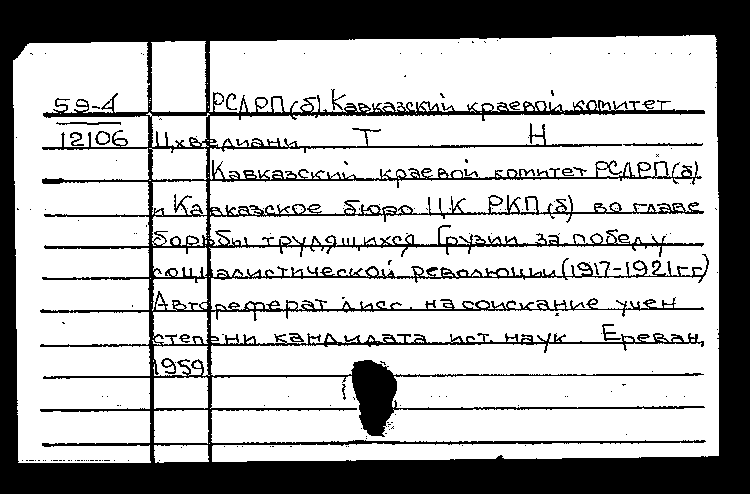 59-4 РСДРП(б). Кавказский краевой комитет
12106 Цхведиани, Т Н
Кавказский краевой комитет РСДРП(б)
и Кавказское бюро ЦК РКП(б) во главе
борьбы трудящихся Грузии за победу
социалистической революции (1917-1921 гг)
Автореферат дисс. на соискание учен
степени кандидата ист. наук Ереван,
1959